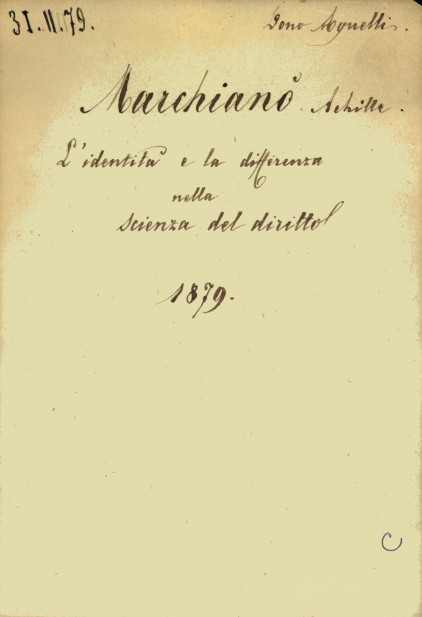 31.II.79.
Dono Agnelli.
Marchianò Achille.
L'identità e la differenza
nella
scienza del diritto
1879.
C